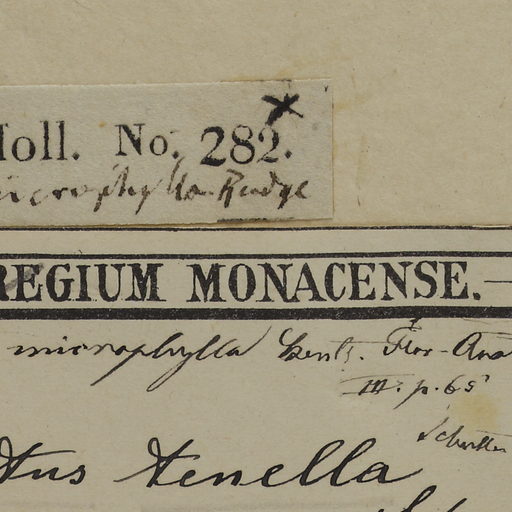 oll. No. 282.
microphylla Rudge
REGIUM MONACENSE.
microphylla Benth. Flor. Aus
III. p. 65
tus tenella